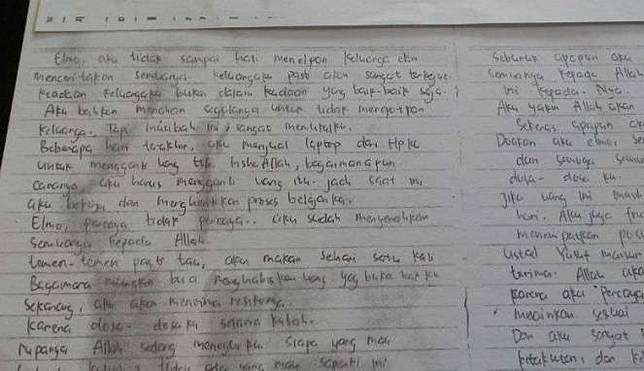 Elmo, aku tidak sampai hati menelpon keluarga dan
menceritakan semuanya. keluargaku pasti akan sangat terkejut.
keadaan keluargaku bukan dalam keadaan yang baik-baik saja.
Aku bahkan menahan segalanya untuk tidak merepotkan
keluarga. Tapi musibah ini, sangat memukulku.
Beberapa hari terakhir, aku menjual laptop dan Hpku
untuk mengganti uang tsb. InshaAllah, bagaimanapun
caranya, aku harus mengganti uang itu. jadi saat ini
aku dan menghentikan proses belanja.
Elmo, percaya tidak percaya.. aku sudah menyerahkan
semuanya kepada Allah.
temen-temen pasti tau, aku makan sehari satu kali
Bagaimana mungkin bisa menghabiskan uang yg bukan hakku
Sekarang, aku akan menerima resikonya.
karena dosa-dosaku selama kuliah.
rupanya Allah sedang menegurku. Siapa yang mau
ada yang mau seperti ini
Seburuk apapun aku
Semuanya kepada Allah
ini kepada-Nya.
Aku yakin Allah akan
Sekeras apapun
Doakan aku elmo,
dan semoga
dosa-dosaku.
Jika uang ini
hari. Aku juga
mendapatkan
ustad Yusuf mansur
terima. Allah
karena aku percaya
sesuai
Dan aku sangat
ketakutan, dan